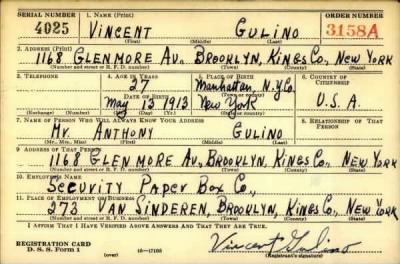 SERIAL NUMBER 1. NAME (Print) ORDER NUMBER
4025 VINCENT GULINO 3158A
(First) (Middle) (Last)
2. ADDRESS (Print)
1168 GLENMORE AV., BROOKLYN, KINGS CO., NEW YORK
(Number and street or R. F. D. number) (Town) (County) (State)
3. TELEPHONE 4. AGE IN YEARS 5. PLACE OF BIRTH 6. COUNTRY OF CITIZENSHIP
27 Manhattan N.Y.Co.
DATE OF BIRTH (Town or county)
May 13 1913 New York U.S.A.
(Exchange) (Number) (Mo.) (Day) (Yr.) (State or country)
7. NAME OF PERSON WHO WILL ALWAYS KNOW YOUR ADDRESS 8. RELATIONSHIP OF THAT PERSON
Mr. ANTHONY GULINO
(Mr., Mrs., Miss) (First) (Middle) (Last)
9. ADDRESS OF THAT PERSON
1168 GLENMORE AV., BROOKLYN, KINGS CO., NEW YORK
(Number and street or R. F. D. number) (Town) (County) (State)
10. EMPLOYER'S NAME
Security Paper Box Co.,
11. PLACE OF EMPLOYMENT OR BUSINESS
273 VAN SINDEREN, BROOKLYN, KINGS CO., NEW YORK
(Number and street or R. F. D. number) (Town) (County) (State)
I AFFIRM THAT I HAVE VERIFIED ABOVE ANSWERS AND THAT THEY ARE TRUE.
REGISTRATION CARD
D. S. S. Form 1 (over) 16-17105 Vincent Gulino
(Registrant's signature)